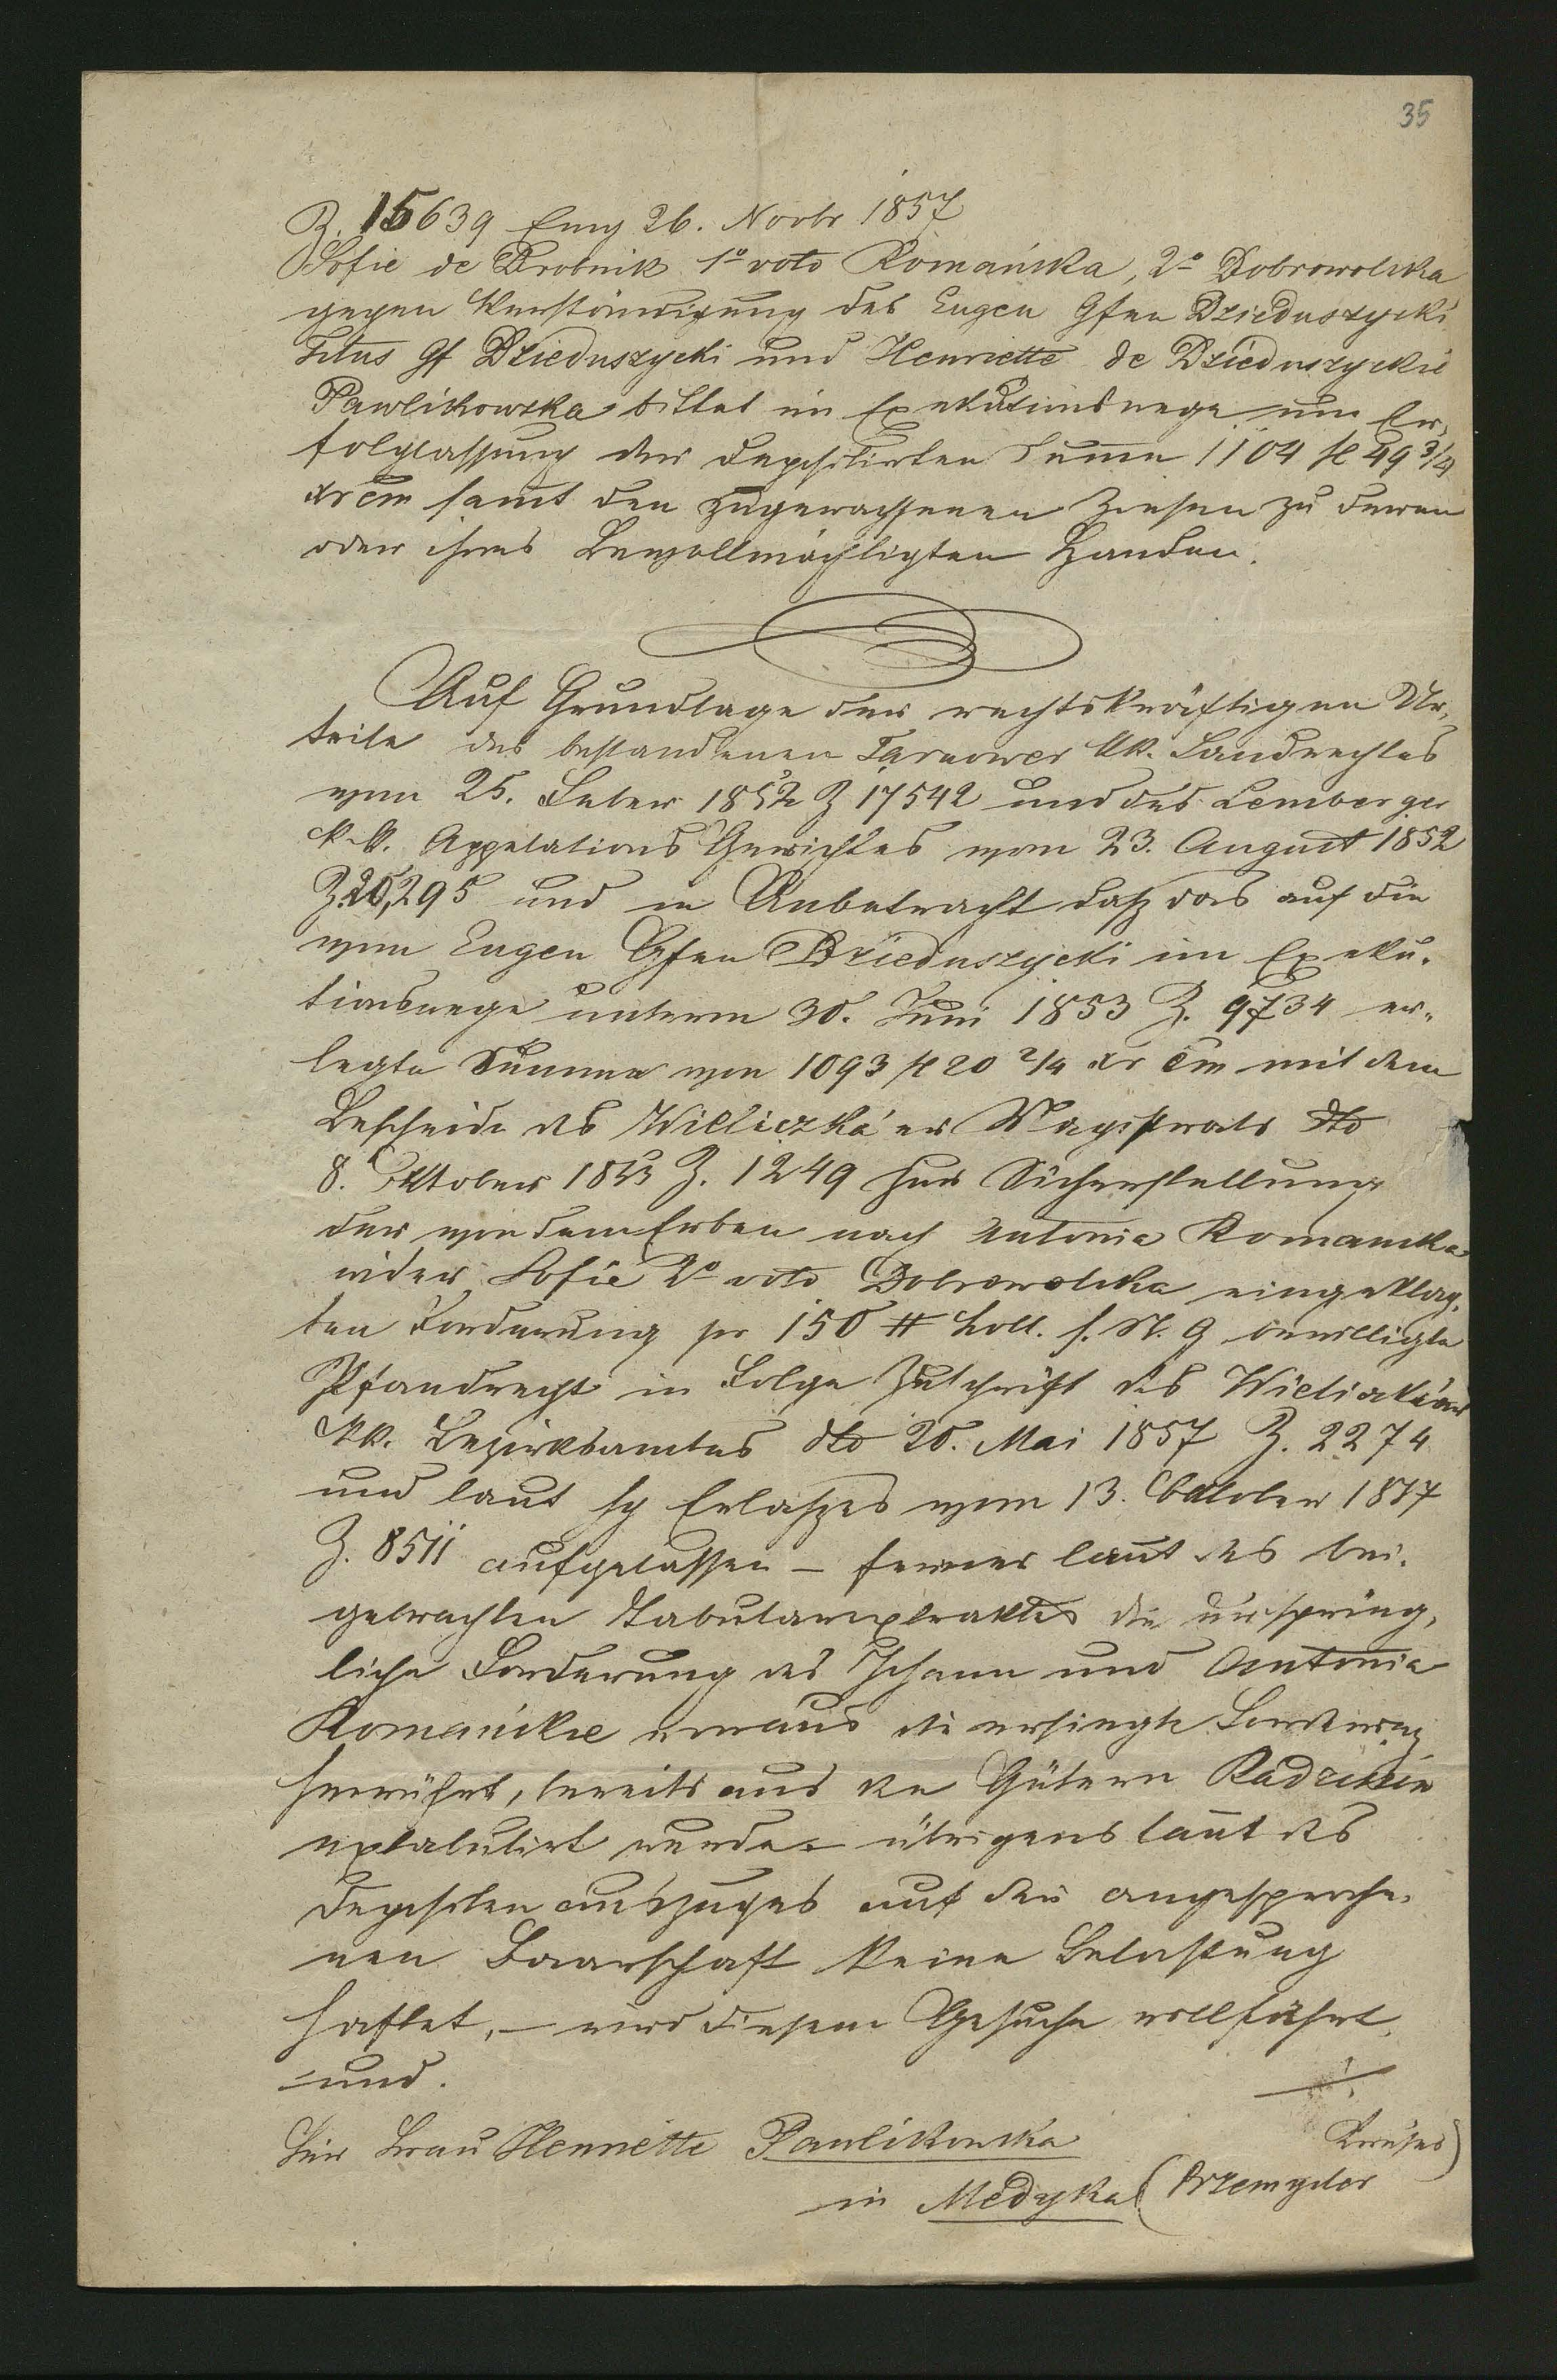 35
Z. 15639 Eing 26. Novbr 1857
Sofie de Drobnik 1o voto Romańska, 2o Dobrowolska
gegen Verständigung des Eugen Gfen Dzieduszycki
Titus Gf Dzieduszycki und Henriette de Dzieduszyckie
Pawlikowska bittet im Exekutionswege um Er„
folglassung der depositirten Summe 1104 f 49 3/4
xr Cm samt den zugewachsenen Zinsen zu deren
oder ihres Bevollmächtigten Handen.
Auf Grundlage der rechtskräftigen Ur„
teile des bestandenen Tarnower kk. Landrechtes
vom 25. Feber 1852 Z 17542 und des Lemberger
k.k. Appelations Gerichtes vom 23. August 1852
Z. 20,295 und in Anbetracht daß das auf die
vom Eugen Gfen Dzieduszycki im Exeku„
tionswege unterm 30. Juni 1853 Z. 9734 er„
legte Summe von 1093 f 20 2/4 xr Cm mit dem
Bescheide des Wieliczka'er Magistrats dto
8. Oktober 1853 Z. 1249 zur Sicherstellung
der von dem Erben nach Antonia Romanska
wider Sofie 2o voto Dobrowolska eingeklag„
ten Forderung pr 150 # holl. s. N. G bewilligte
Pfandrecht in Folge Zuschrift des Wieliczkaer
kk. Bezirksamtes dto 20. Mai 1857 Z. 2274
und laut hg Erlaßes vom 13. Oktober 1857
Z. 8511 aufgelassen – ferner laut des bei„
gebrachten Tabularextraktes die ursprüng„
liche Forderung des Johann und Antonia
Romańskie woraus die ersiegte Forderung
herrührt, bereits aus den Gütern Radziszów
extabulirt wurde – übrigens laut des
Depositenauszuges auf der angesproche„
nen Baarschaft keine Belastung
haftet, – wird diesem Gesuche willfahrt
und.
Für Frau Henriette Pawlikowska
in Medyka (Przemysler
Kreises)